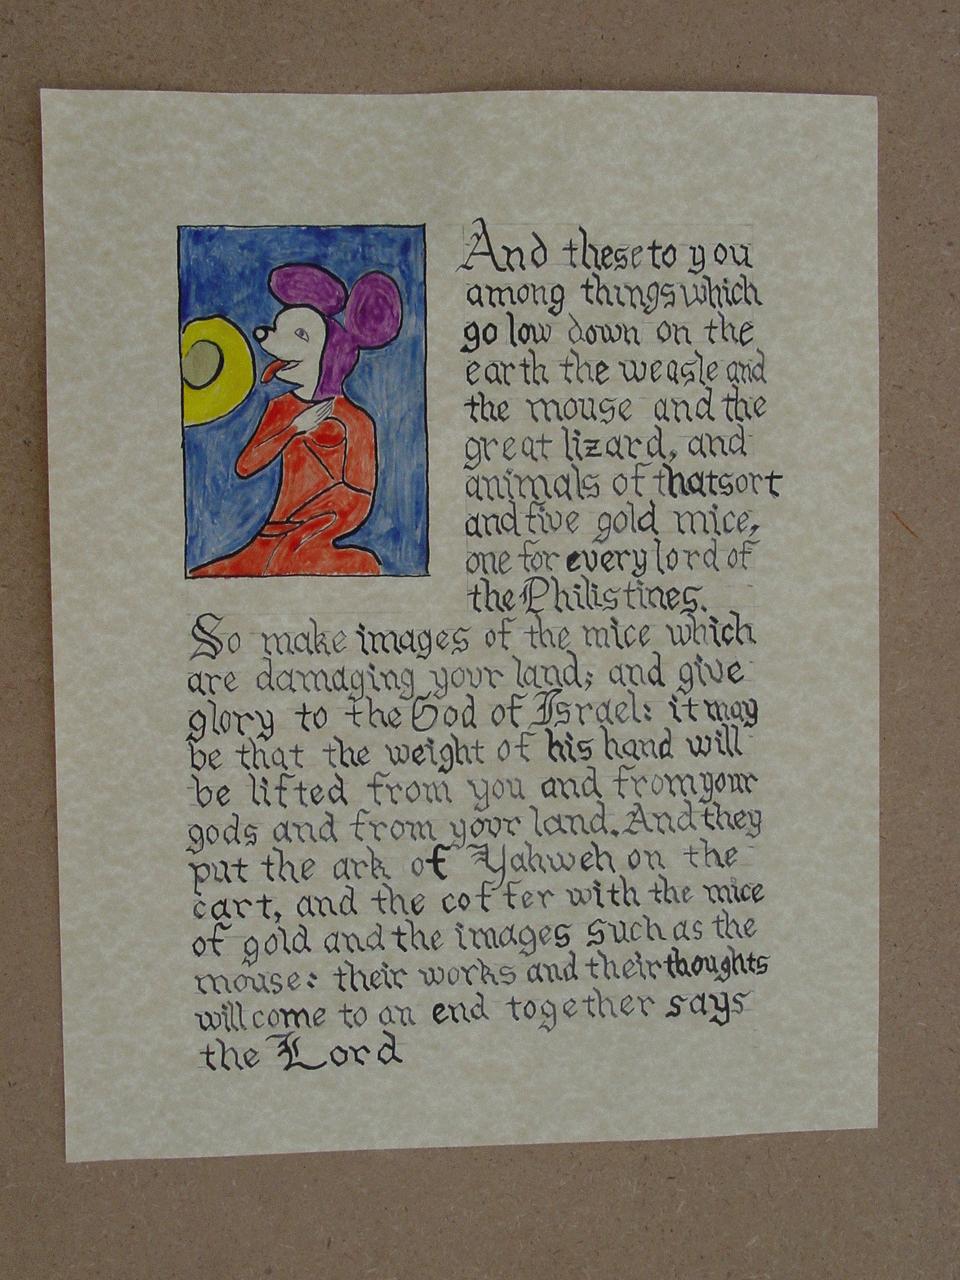 And these to you
among things which
go low down on the
earth the weasle and
the mouse and the
great lizard, and
animals of that sort
and five gold mice,
one for every lord of
the Philistines.
So make images of the mice which
are damaging your land; and give
glory to the God of Israel: it may
be that the weight of his hand will
be lifted from you and from your
gods and from your land. And they
put the ark of Yahweh on the
cart, and the coffer with the mice
of gold and the images such as the
mouse: their works and their thoughts
will come to an end together says
the Lord